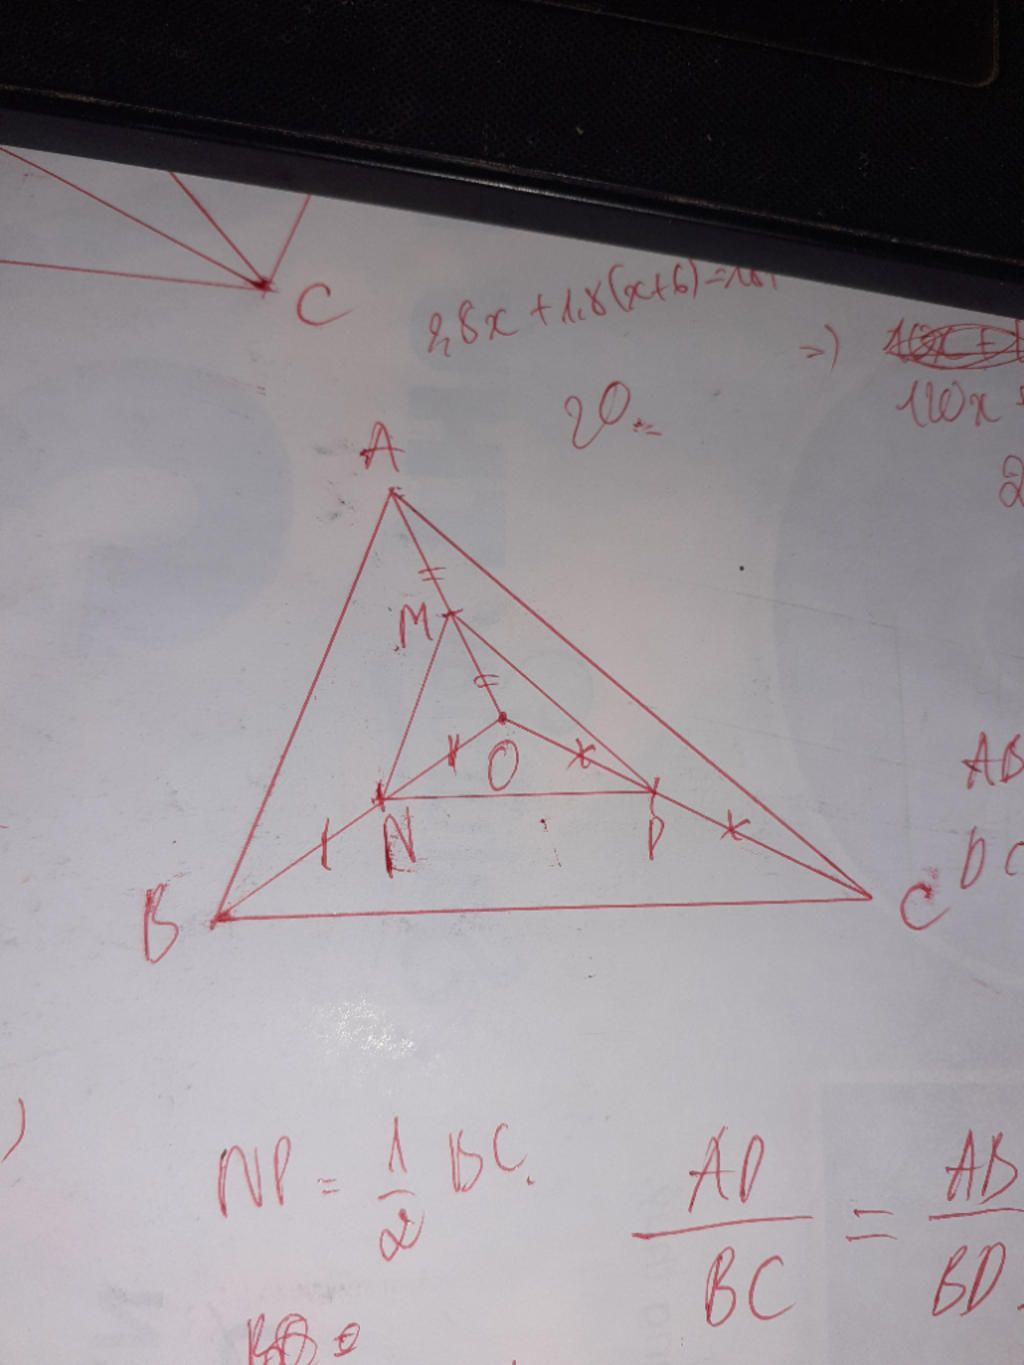 C
2,8x + 1,8(x+6) =
=)
20
120x
2
A
M
O
N
P
B
C
AB
DC
)
NP = 1/2 BC.
AD/BC = AB/BD